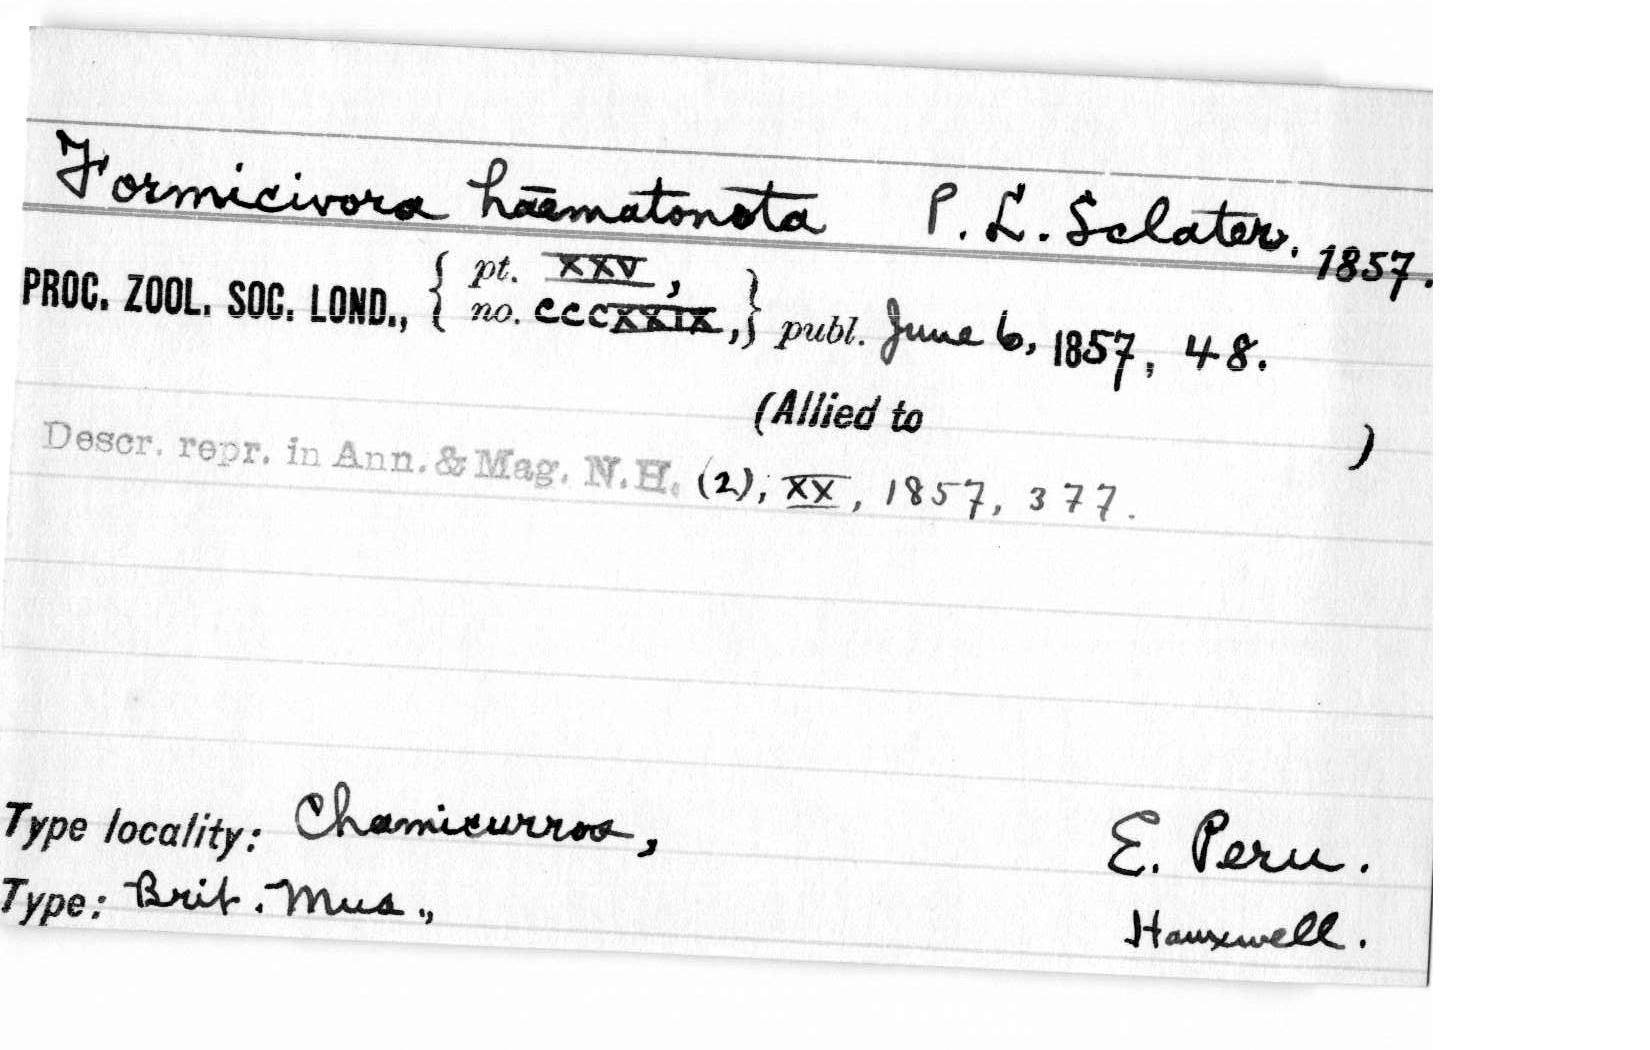 Formicivora haematonota P. L. Sclater. 1857.
PROC. ZOOL. SOC. LOND., { pt. XXV, no. CCCXXIX, } publ. June 6, 1857, 48.
(Allied to )
Descr. repr. in Ann. & Mag. N.H. (2), XX, 1857, 377.
Type locality: Chamicurros, E. Peru.
Type: Brit. Mus., Hauxwell.